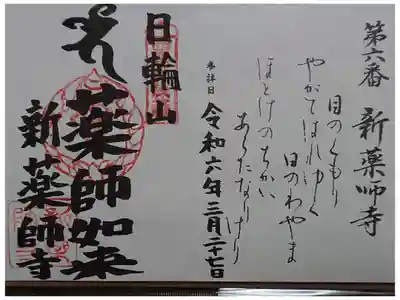 第六番 新薬師寺
目のくもり
やがてはれゆく
日のわやま
ほとけのちかい
あらたなりけり
参拝日
令和六年三月二十七日
日輪山
薬師如来
新薬師寺